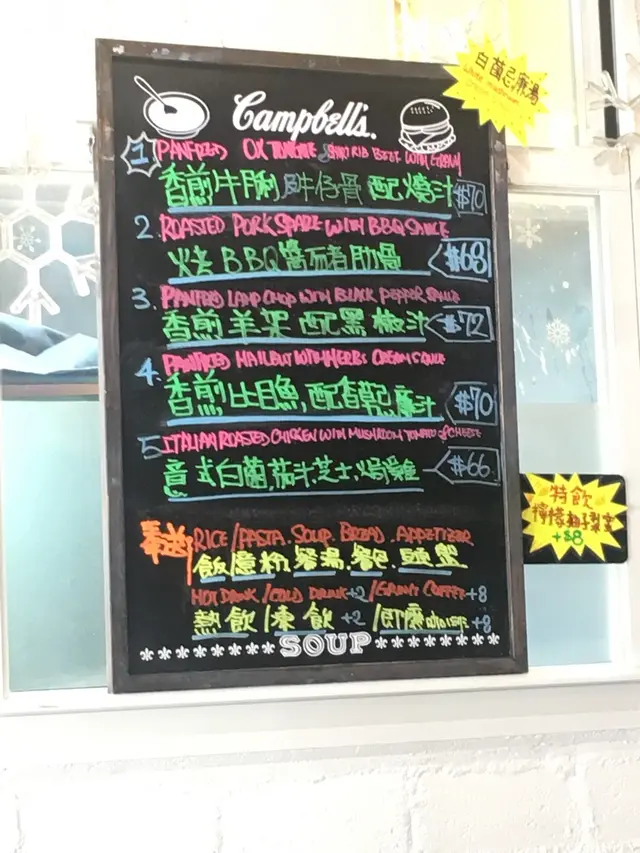 白菌忌廉湯
White mushroom
Campbell's.
1 PANFRIED OX TONGUE & SHORT RIB BEEF WITH GRAVY
香煎牛脷 牛仔骨 配燒汁 $70
2. ROASTED PORK SPARE WITH BBQ SAUCE
烤BBQ醬 肋骨 $68
3. PANFRIED LAMP CHOP WITH BLACK PEPPER SAUCE
香煎羊架 配黑椒汁 $72
4. PANFRIED HAILBUT WITH HERBS CREAM SAUCE
香煎比目魚,配香草忌廉汁 $70
5 ITALIAN ROASTED CHICKEN WITH MUSHROOM TOMATO & CHEESE
意式白菌,茄汁,芝士,焗雞 $66
特飲
檸檬柚子梨蜜
+$8
奉送 RICE/PASTA. SOUP. BREAD. APPETIZER
飯/意粉,餐湯,餐包,頭盤
HOT DRINK/COLD DRINK+2 /GRAVY COFFEE+8
熱飲/凍飲+2 / +8
*********SOUP*********